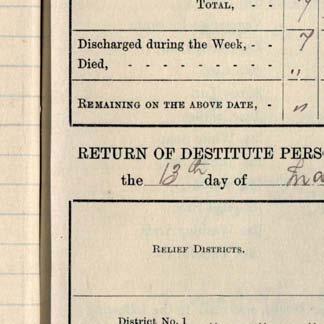 TOTAL, - - 7
Discharged during the Week, - - 7
Died, - - - - - - - - "
REMAINING ON THE ABOVE DATE, - "
RETURN OF DESTITUTE PERS
the 13th day of Ma
RELIEF DISTRICTS.
District No. 1